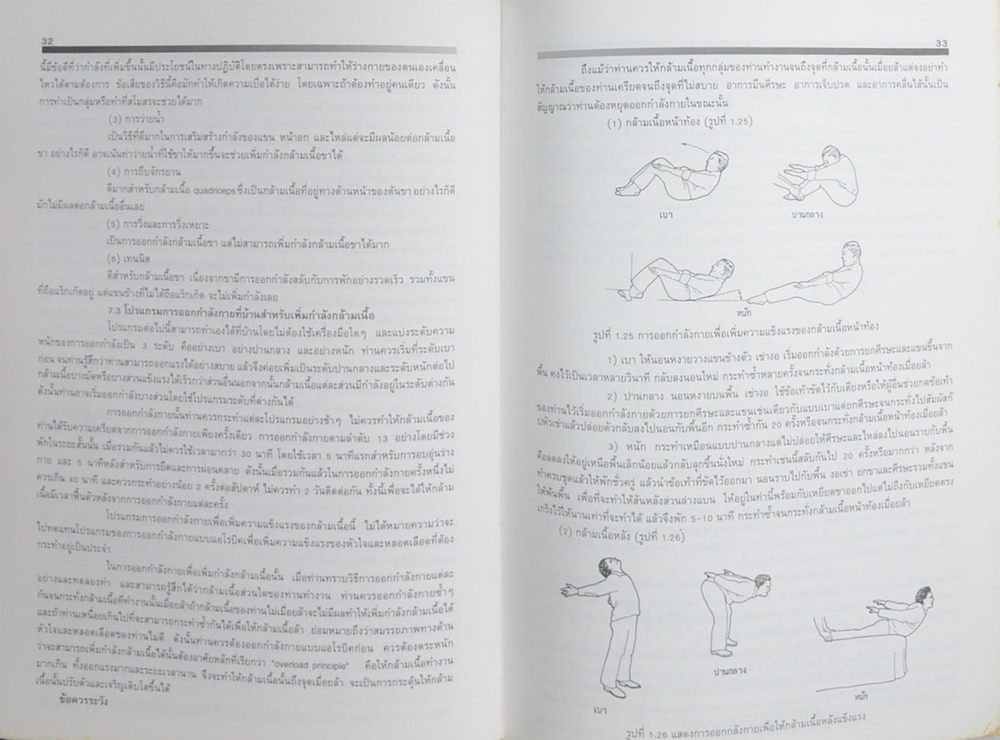 32
นี้มีข้อดีที่ว่ากำลังที่เพิ่มขึ้นนั้นมีประโยชน์ในทางปฏิบัติโดยตรงเพราะสามารถทำให้ร่างกายของตนเองเคลื่อน
ไหวได้ตามต้องการ ข้อเสียของวิธีนี้คือมักทำให้เกิดความเบื่อได้ง่าย โดยเฉพาะถ้าต้องทำอยู่คนเดียว ดังนั้น
การทำเป็นกลุ่มหรือทำที่สโมสรจะช่วยได้มาก
(3) การว่ายน้ำ
เป็นวิธีที่ดีมากในการเสริมสร้างกำลังของแขน หน้าอก และไหล่แต่จะมีผลน้อยต่อกล้ามเนื้อ
ขา อย่างไรก็ดี อาจเน้นท่าว่ายน้ำที่ใช้ขาให้มากขึ้นจะช่วยเพิ่มกำลังกล้ามเนื้อขาได้
(4) การถีบจักรยาน
ดีมากสำหรับกล้ามเนื้อ quadriceps ซึ่งเป็นกล้ามเนื้อที่อยู่ทางด้านหน้าของต้นขา อย่างไรก็ดี
มักไม่มีผลต่อกล้ามเนื้ออื่นเลย
(5) การวิ่งและการวิ่งเหยาะ
เป็นการออกกำลังกล้ามเนื้อขา แต่ไม่สามารถเพิ่มกำลังกล้ามเนื้อขาได้มาก
(6) เทนนิส
ดีสำหรับกล้ามเนื้อขา เนื่องจากขามีการออกกำลังสลับกับการพักอย่างรวดเร็ว รวมทั้งแขน
ที่ถือแร็กเก็ตอยู่ แต่แขนข้างที่ไม่ได้ถือแร็กเก็ต จะไม่เพิ่มกำลังเลย
7.3 โปรแกรมการออกกำลังกายที่บ้านสำหรับเพิ่มกำลังกล้ามเนื้อ
โปรแกรมต่อไปนี้สามารถทำเองได้ที่บ้านโดยไม่ต้องใช้เครื่องมือใดๆ และแบ่งระดับความ
หนักของการออกกำลังเป็น 3 ระดับ คืออย่างเบา อย่างปานกลาง และอย่างหนัก ท่านควรเริ่มที่ระดับเบา
ก่อน จนท่านรู้สึกว่าท่านสามารถออกแรงได้อย่างสบาย แล้วจึงค่อยเพิ่มเป็นระดับปานกลางและระดับหนักต่อไป
กล้ามเนื้อบางมัดหรือบางส่วนแข็งแรงได้เร็วกว่าส่วนอื่นนอกจากนั้นกล้ามเนื้อแต่ละส่วนมีกำลังอยู่ในระดับต่างกัน
ดังนั้นท่านอาจเริ่มออกกำลังบางส่วนโดยใช้โปรแกรมระดับที่ต่างกันได้
การออกกำลังกายนั้นท่านควรกระทำแต่ละโปรแกรมอย่างช้าๆ ไม่ควรทำให้กล้ามเนื้อของ
ท่านได้รับความเครียดจากการออกกำลังกายเพียงครั้งเดียว การออกกำลังกายตามลำดับ 13 อย่างโดยมีช่วง
พักในระยะสั้นนั้น เมื่อรวมกันแล้วไม่ควรใช้เวลามากกว่า 30 นาที โดยใช้เวลา 5 นาทีแรกสำหรับการอบอุ่นร่าง
กาย และ 5 นาทีหลังสำหรับการยืดและการผ่อนคลาย ดังนั้นเมื่อรวมกันแล้วในการออกกำลังกายครั้งหนึ่งไม่
ควรเกิน 40 นาที และควรกระทำอย่างน้อย 2 ครั้งต่อสัปดาห์ ไม่ควรทำ 2 วันติดต่อกัน ทั้งนี้เพื่อจะได้ให้กล้าม
เนื้อมีเวลาฟื้นตัวหลังจากการออกกำลังกายแต่ละครั้ง
โปรแกรมการออกกำลังกายเพื่อเพิ่มความแข็งแรงของกล้ามเนื้อนี้ ไม่ได้หมายความว่าจะ
ไปทดแทนโปรแกรมของการออกกำลังกายแบบแอโรบิคเพื่อเพิ่มความแข็งแรงของหัวใจและหลอดเลือดที่ต้อง
กระทำอยู่เป็นประจำ
ในการออกกำลังกายเพื่อเพิ่มกำลังกล้ามเนื้อนั้น เมื่อท่านทราบวิธีการออกกำลังกายแต่ละ
อย่างและทดลองทำ และสามารถรู้สึกได้ว่ากล้ามเนื้อส่วนใดของท่านทำงาน ท่านควรออกกำลังกายซ้ำๆ
กันจนกระทั่งกล้ามเนื้อที่ทำงานนั้นเมื่อยล้าถ้ากล้ามเนื้อของท่านไม่เมื่อยล้าจะไม่มีผลทำให้เพิ่มกำลังกล้ามเนื้อได้
และถ้าท่านเหนื่อยเกินไปที่จะสามารถกระทำซ้ำกันได้เพื่อให้กล้ามเนื้อล้า ย่อมหมายถึงว่าสมรรถภาพทางด้าน
หัวใจและหลอดเลือดของท่านไม่ดี ดังนั้นท่านควรต้องออกกำลังกายแบบแอโรบิคก่อน ควรต้องตระหนัก
ว่าจะสามารถเพิ่มกำลังกล้ามเนื้อได้นั้นต้องอาศัยหลักที่เรียกว่า "overload principle" คือให้กล้ามเนื้อทำงาน
มากเกิน ทั้งออกแรงมากและระยะเวลานาน จึงจะทำให้กล้ามเนื้อนั้นถึงจุดเมื่อยล้า จะเป็นการกระตุ้นให้กล้าม
เนื้อนั้นปรับตัวและเจริญเติบโตขึ้นได้
ข้อควรระวัง
33
ถึงแม้ว่าท่านควรให้กล้ามเนื้อทุกกลุ่มของท่านทำงานจนถึงจุดที่กล้ามเนื้อนั้นเมื่อยล้าแต่จงอย่าทำ
ให้กล้ามเนื้อของท่านเครียดจนถึงจุดที่ไม่สบาย อาการมึนศีรษะ อาการเจ็บปวด และอาการคลื่นไส้นั้นเป็น
สัญญาณว่าท่านต้องหยุดออกกำลังกายในขณะนั้น
(1) กล้ามเนื้อหน้าท้อง (รูปที่ 1.25)
เบา
ปานกลาง
หนัก
รูปที่ 1.25 การออกกำลังกายเพื่อเพิ่มความแข็งแรงของกล้ามเนื้อหน้าท้อง
1) เบา ให้นอนหงายวางแขนข้างตัว เข่างอ เริ่มออกกำลังด้วยการยกศีรษะและแขนขึ้นจาก
พื้น คงไว้เป็นเวลาหลายวินาที กลับลงนอนใหม่ กระทำซ้ำหลายครั้งจนกระทั่งกล้ามเนื้อหน้าท้องเมื่อยล้า
2) ปานกลาง นอนหงายบนพื้น เข่างอ ใช้ข้อเท้าขัดไว้กับเตียงหรือให้ผู้อื่นช่วยกดข้อเท้า
ของท่านไว้เริ่มออกกำลังกายด้วยการยกศีรษะและแขนเช่นเดียวกับแบบเบาแต่ยกศีรษะจนกระทั่งไปสัมผัสกับ
หัวเข่าแล้วปล่อยตัวกลับลงไปนอนกับพื้นอีก กระทำซ้ำกัน 20 ครั้งหรือจนกระทั่งกล้ามเนื้อหน้าท้องเมื่อยล้า
3) หนัก กระทำเหมือนแบบปานกลางแต่ไม่ปล่อยให้ศีรษะและไหล่ลงไปนอนราบกับพื้น
คือลดลงให้อยู่เหนือพื้นเล็กน้อยแล้วกลับลุกขึ้นนั่งใหม่ กระทำเช่นนี้สลับกันไป 20 ครั้งหรือมากกว่า หลังจาก
ทำครบชุดแล้วให้พักชั่วครู่ แล้วนำข้อเท้าที่ขัดไว้ออกมา นอนราบไปกับพื้น งอเข่า ยกขาและศีรษะรวมทั้งแขน
ให้พ้นพื้น เพื่อที่จะทำให้สันหลังส่วนล่างแบน ให้อยู่ในท่านี้พร้อมกับเหยียดขาออกไปแต่ไม่ถึงกับเหยียดตรง
เกร็งไว้ให้นานเท่าที่จะทำได้ แล้วจึงพัก 5-10 นาที กระทำซ้ำจนกระทั่งกล้ามเนื้อหน้าท้องเมื่อยล้า
(2) กล้ามเนื้อหลัง (รูปที่ 1.26)
เบา
ปานกลาง
หนัก
รูปที่ 1.26 แสดงการออกกำลังกายเพื่อให้กล้ามเนื้อหลังแข็งแรง